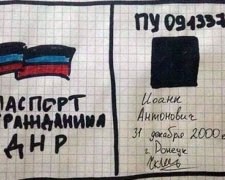 ПАСПОРТ
ГРАЖДАНИНА
ДНР
ПУ 091337
Иоанн
Антонович
31 декабря 2000
г. Донецк